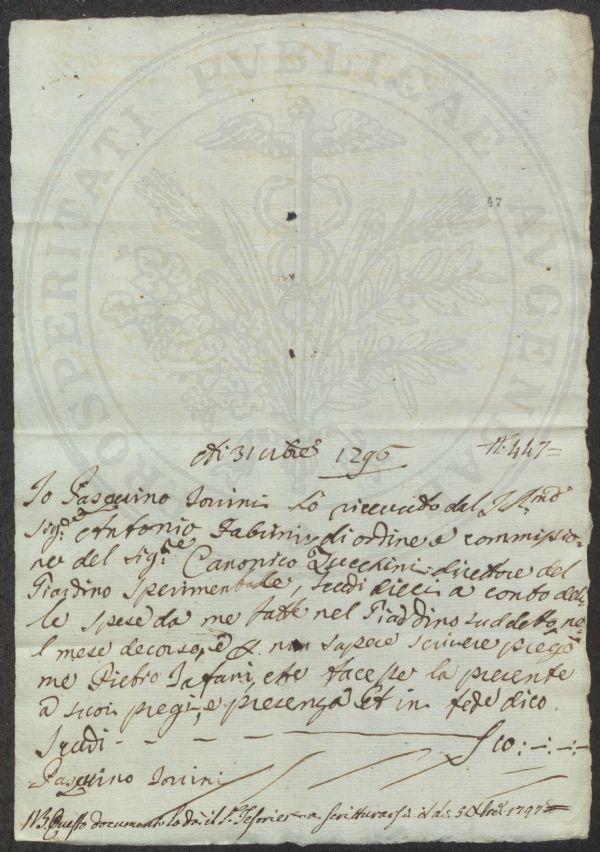 PROSPERITATI PVBLICAE AVGENDAE
47
Adi 31 8bre 1796
N: 447=
Io Pasquino Iovini ho ricevuto dal Ill.mo
Sig.re Antonio Fabrini, di ordine e commissio-
ne del Sig.re Canonico Zucchini direttore del
Giardino Sperimentale, Scudi dieci a conto del-
le spese da me fatte nel Giardino suddetto, ne-
l mese decorso, e p. non sapere scrivere pregò
me Pietro Tafani, che facesse la presente
à suoi pregi, e presenza et in fede dico
Scudi - - - - 10: -: -: -
Pasquino Iovini
NB. Questo documento lo dà il S.r Tesoriere a scritturarsi il dì 5 1797=